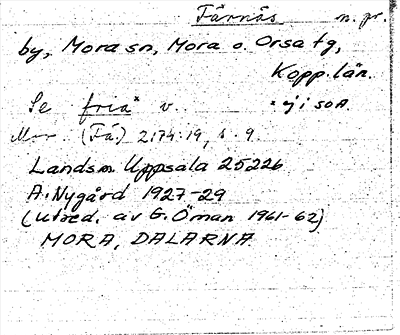 Färnäs n. pr.
by, Mora sn, Mora o. Orsa tg,
Kopp. län.
Se fria* v. * ej i SOA
(Fä.) 2174:19, s. 9.
Landsm. Uppsala 25226
A. Nygård 1927-29
(utred. av G. Öman 1961-62)
MORA, DALARNA